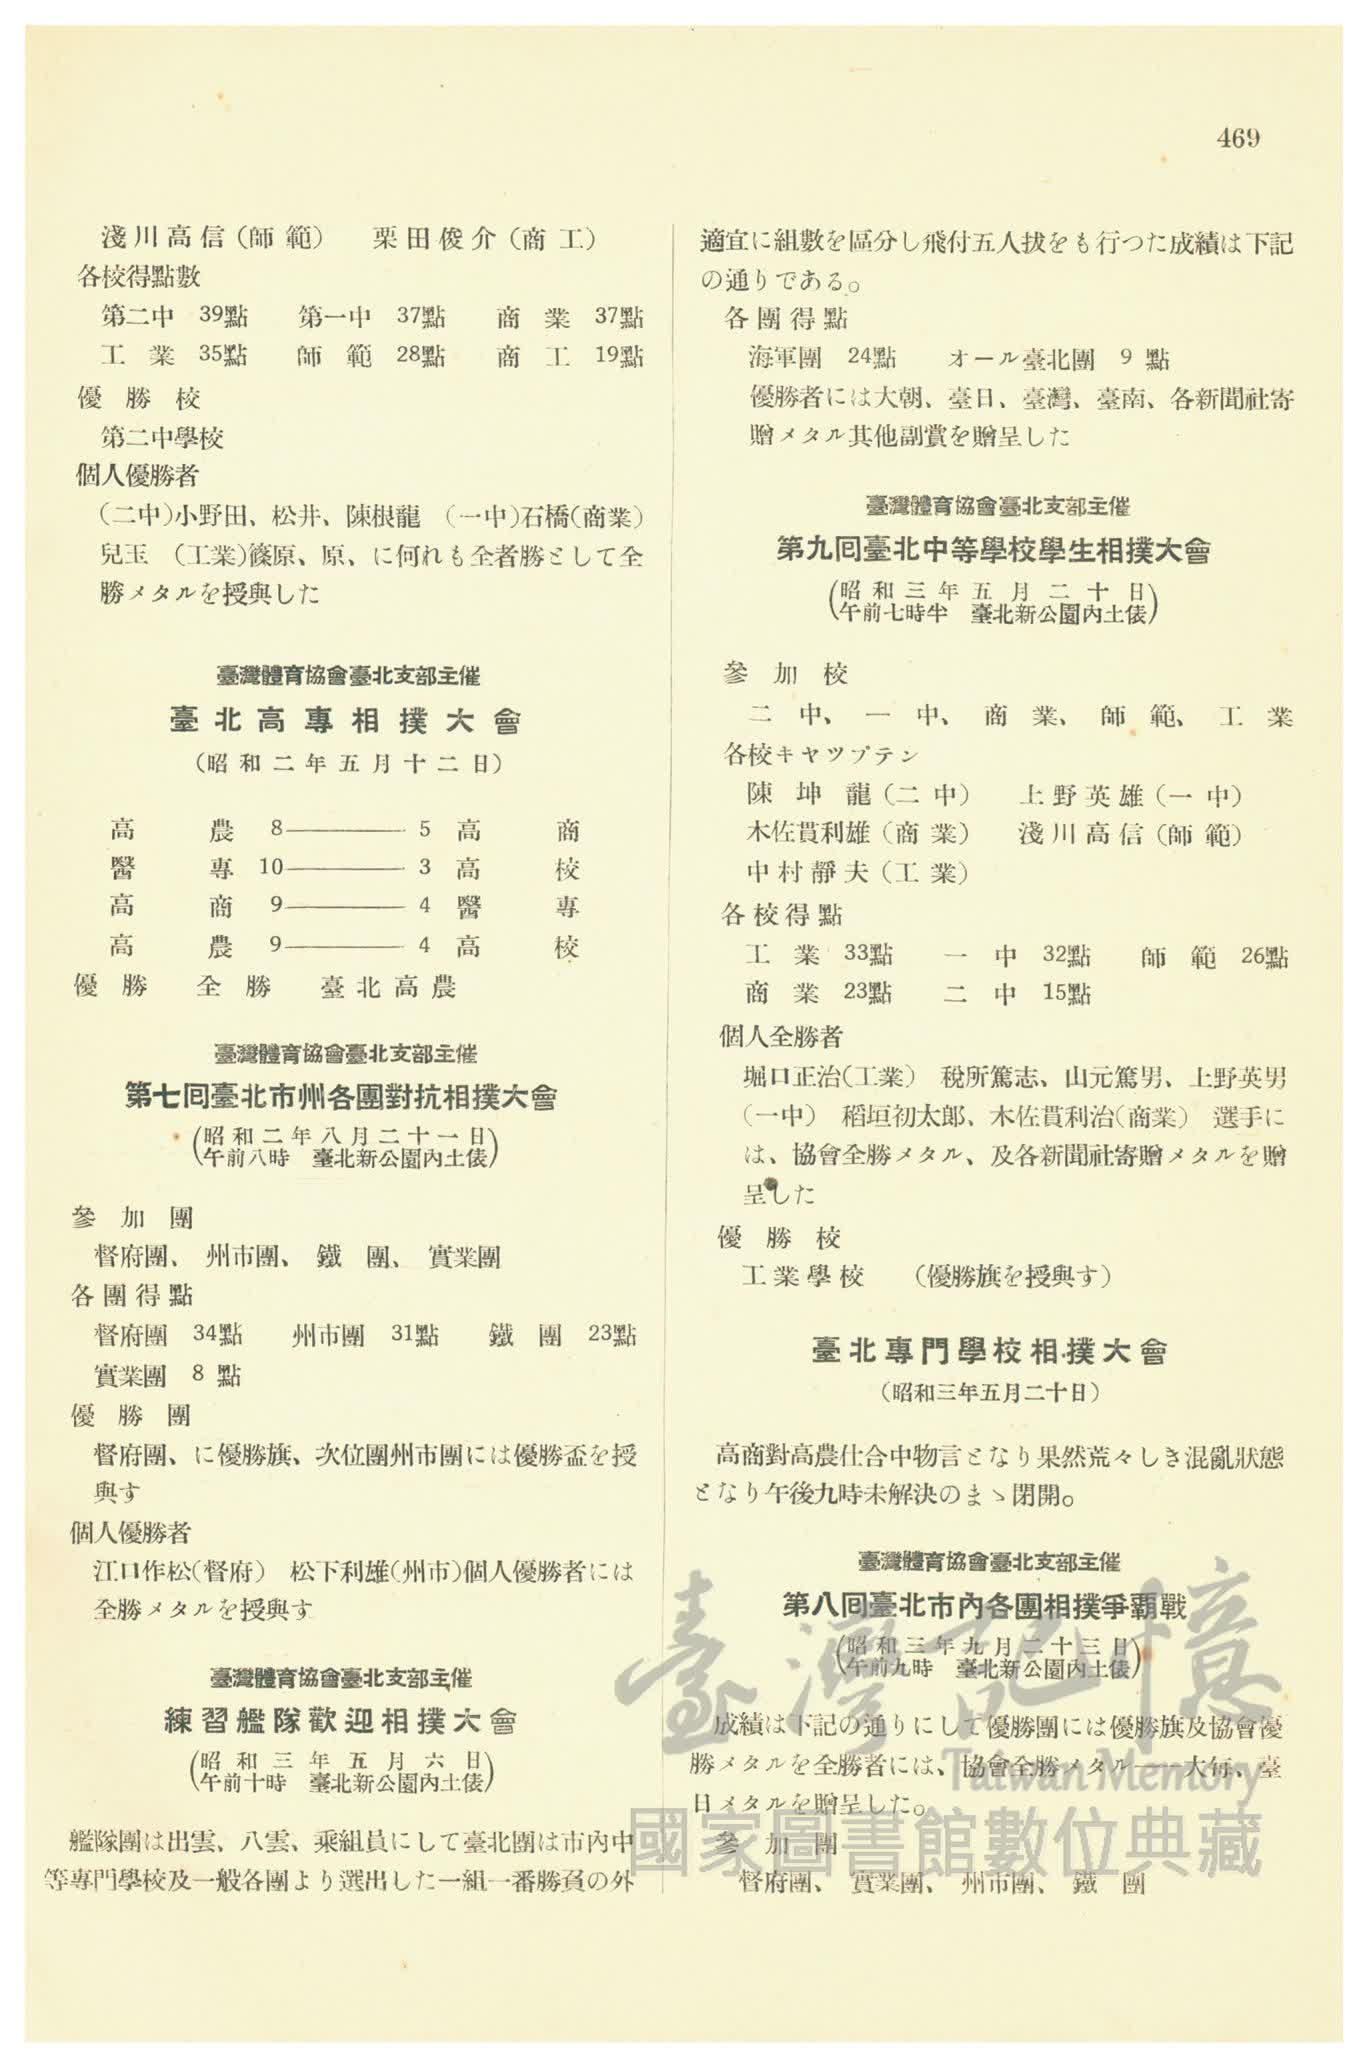 469
淺川高信（師範）　栗田俊介（商工）
各校得點數
第二中　39點　第一中　37點　商業　37點
工業　35點　師範　28點　商工　19點
優勝校
第二中學校
個人優勝者
（二中）小野田、松井、陳根龍　（一中）石橋（商業）
兒玉　（工業）篠原、原、に何れも全者勝として全
勝メタルを授與した
臺灣體育協會臺北支部主催
臺北高專相撲大會
（昭和二年五月十二日）
高農　8———5　高商
醫專　10———3　高校
高商　9———4　醫專
高農　9———4　高校
優勝　全勝　臺北高農
臺灣體育協會臺北支部主催
第七回臺北市州各團對抗相撲大會
（昭和二年八月二十一日
午前八時　臺北新公園內土俵）
參加團
督府團、州市團、鐵團、實業團
各團得點
督府團　34點　州市團　31點　鐵團　23點
實業團　8點
優勝團
督府團、に優勝旗、次位團州市團には優勝盃を授
與す
個人優勝者
江口作松（督府）　松下利雄（州市）個人優勝者には
全勝メタルを授與す
臺灣體育協會臺北支部主催
練習艦隊歡迎相撲大會
（昭和三年五月六日
午前十時　臺北新公園內土俵）
艦隊團は出雲、八雲、乘組員にして臺北團は市內中
等專門學校及一般各團より選出した一組一番勝負の外
適宜に組數を區分し飛付五人拔をも行つた成績は下記
の通りである。
各團得點
海軍團　24點　オール臺北團　9點
優勝者には大朝、臺日、臺灣、臺南、各新聞社寄
贈メタル其他副賞を贈呈した
臺灣體育協會臺北支部主催
第九回臺北中等學校學生相撲大會
（昭和三年五月二十日
午前七時半　臺北新公園內土俵）
參加校
二中、一中、商業、師範、工業
各校キヤツプテン
陳坤龍（二中）　上野英雄（一中）
木佐貫利雄（商業）　淺川高信（師範）
中村靜夫（工業）
各校得點
工業　33點　一中　32點　師範　26點
商業　23點　二中　15點
個人全勝者
堀口正治（工業）　稅所篤志、山元篤男、上野英男
（一中）　稻垣初太郎、木佐貫利治（商業）　選手に
は、協會全勝メタル、及各新聞社寄贈メタルを贈
呈した
優勝校
工業學校　（優勝旗を授與す）
臺北專門學校相撲大會
（昭和三年五月二十日）
高商對高農仕合中物言となり果然荒々しき混亂狀態
となり午後九時未解決のまゝ閉開。
臺灣體育協會臺北支部主催
第八回臺北市內各團相撲爭霸戰
（昭和三年九月二十三日
午前九時　臺北新公園內土俵）
成績は下記の通りにして優勝團には優勝旗及協會優
勝メタルを全勝者には、協會全勝メタル——大每、臺
日メタルを贈呈した。
參加團
督府團、實業團、州市團、鐵團
臺灣記憶
Taiwan Memory
國家圖書館數位典藏